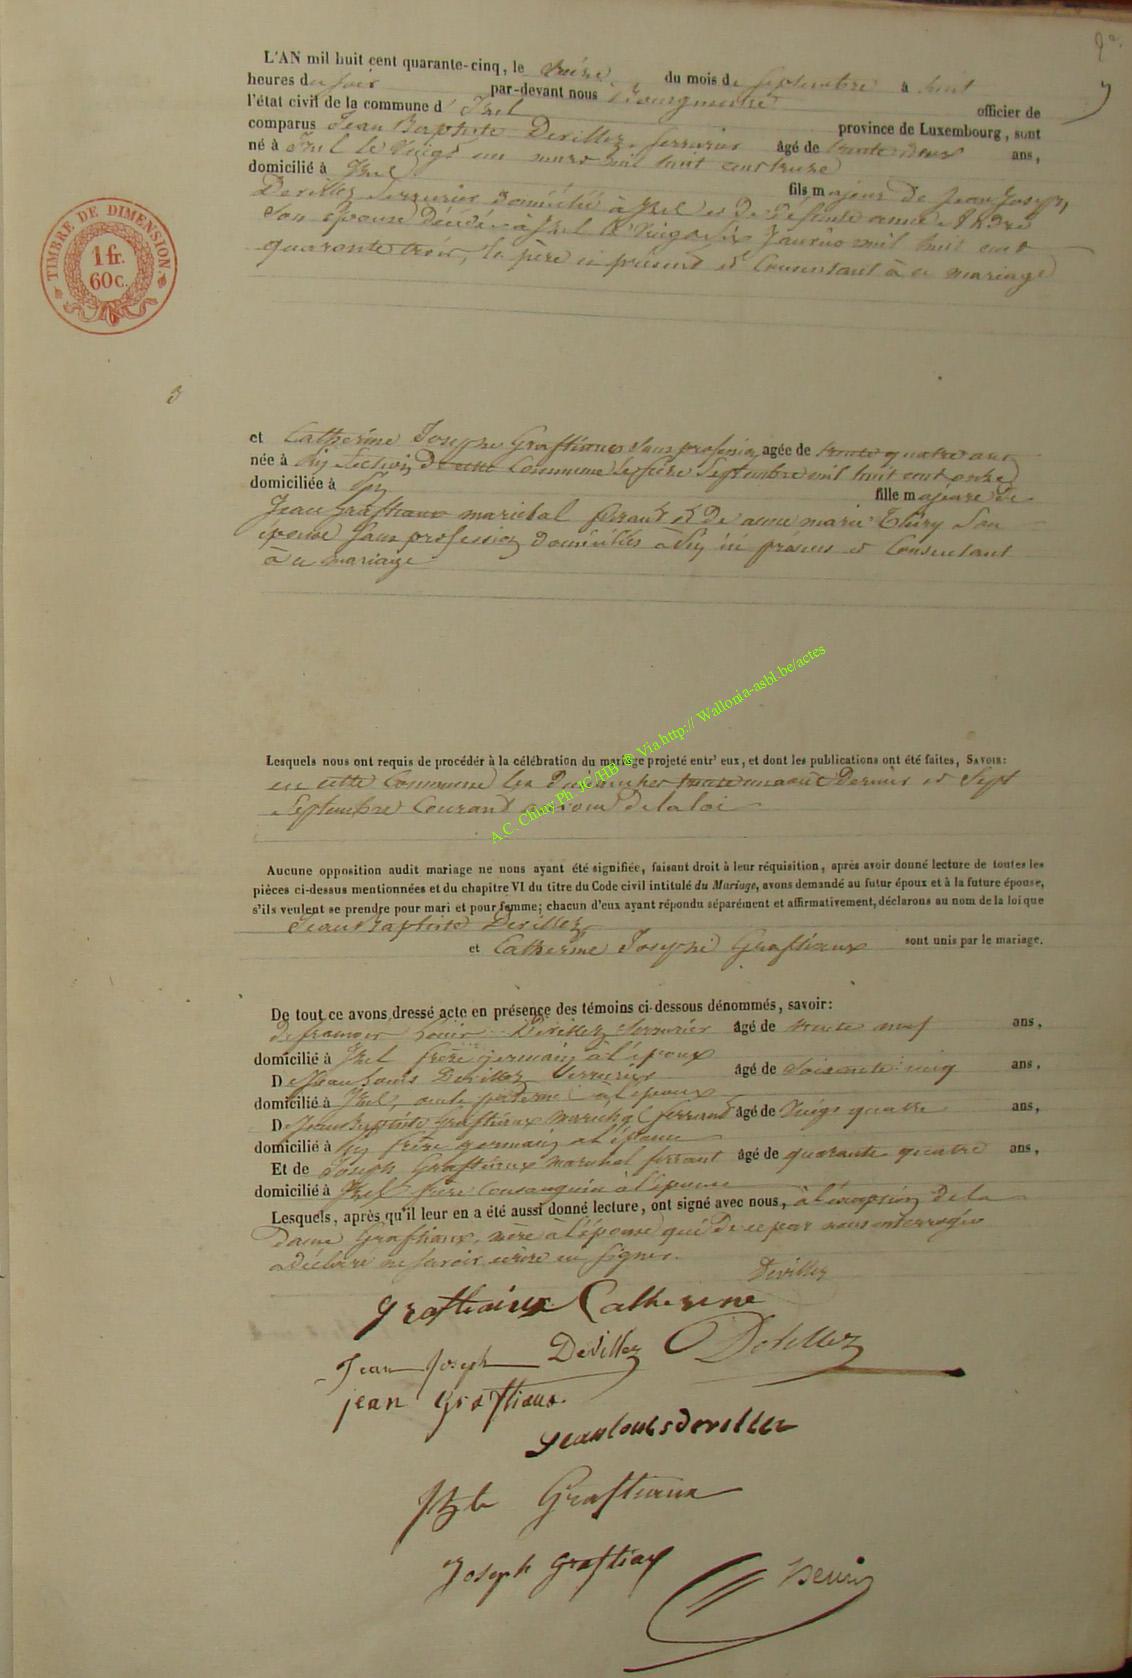 L'AN mil huit cent quarante-cinq, le treize du mois de septembre à huit
heures du soir par-devant nous Bourgmestre officier de
l'état civil de la commune d'Izel province de Luxembourg, sont
comparus Jean Baptiste Devillez serrurier âgé de trente deux ans,
né à Izel le Vingt un mars mil huit cent treize
domicilié à Izel fils majeur de Jean Joseph
Devillez Serrurier domicilié à Izel et de défunte anne
son épouse décédée à Izel le Vingt six Janvier mil huit cent
quarante trois, le père ici présent et Consentant à ce mariage
TIMBRE DE DIMENSION
1 fr.
60 c.
3
et Catherine Josephe Graftiaux sans profession agée de trente quatre ans
née à section de cette Commune le Septembre mil huit cent onze
domiciliée à fille majeure de
Jean Graftiaux maréchal ferrant et de anne marie Thiry son
épouse sans profession domiciliés à ici présens et Consentant
à ce mariage
Lesquels nous ont requis de procéder à la célébration du mariage projeté entr' eux, et dont les publications ont été faites, SAVOIR:
en cette Commune les Dimanches trente un août Dernier et Sept
Septembre Courant au nom de la loi
Aucune opposition audit mariage ne nous ayant été signifiée, faisant droit à leur réquisition, après avoir donné lecture de toutes les
pièces ci-dessus mentionnées et du chapitre VI du titre du Code civil intitulé du Mariage, avons demandé au futur époux et à la future épouse,
s'ils veulent se prendre pour mari et pour femme; chacun d'eux ayant répondu séparément et affirmativement, déclarons au nom de la loi que
Jean Baptiste Devillez
et Catherine Josephe Graftiaux sont unis par le mariage.
De tout ce avons dressé acte en présence des témoins ci-dessous dénommés, savoir:
de françois Louis Devillez Serrurier âgé de trente neuf ans,
domicilié à Izel frère germain à l'époux
De Jean Louis Devillez Serrurier âgé de soixante cinq ans,
domicilié à Izel, oncle paternel à l'époux
De Jean Baptiste Graftiaux maréchal ferrant âgé de Vingt quatre ans,
domicilié à frère germain à l'épouse
Et de Joseph Graftiaux maréchal ferrant âgé de quarante quatre ans,
domicilié à Izel frère Consanguin à l'épouse
Lesquels, après qu'il leur en a été aussi donné lecture, ont signé avec nous, à l'exception de la
Dame Graftiaux, mère à l'épouse qui de ce par nous interrogée
a déclaré ne savoir écrire ni signer.
Devillez
Graftiaux Catherine
Jean Joseph Devillez Devillez
jean Graftiaux
Jean louis devillez
Graftiaux
Joseph Graftiax
A.C. Chiny Ph JC/HB @ Via http:// Wallonia-asbl.be/actes